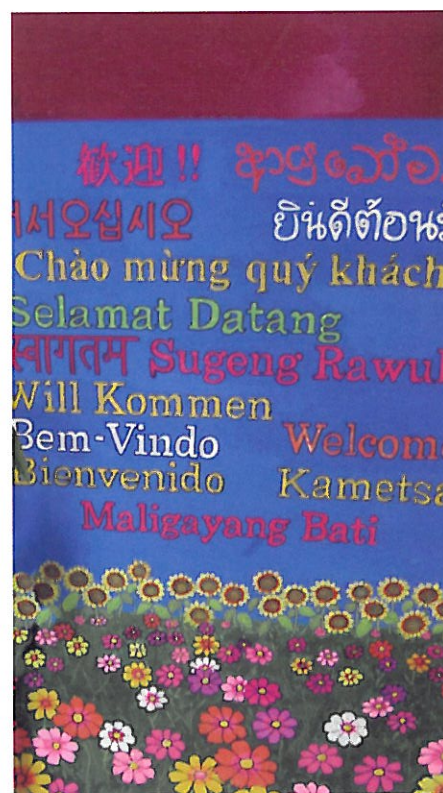 歓迎!! ආයුබෝව
서오십시오 ยินดีต้อน
Chào mừng quý khách
Selamat Datang
स्वागतम Sugeng Rawuh
Will Kommen
Bem-Vindo Welcome
Bienvenido Kametsa
Maligayang Bati